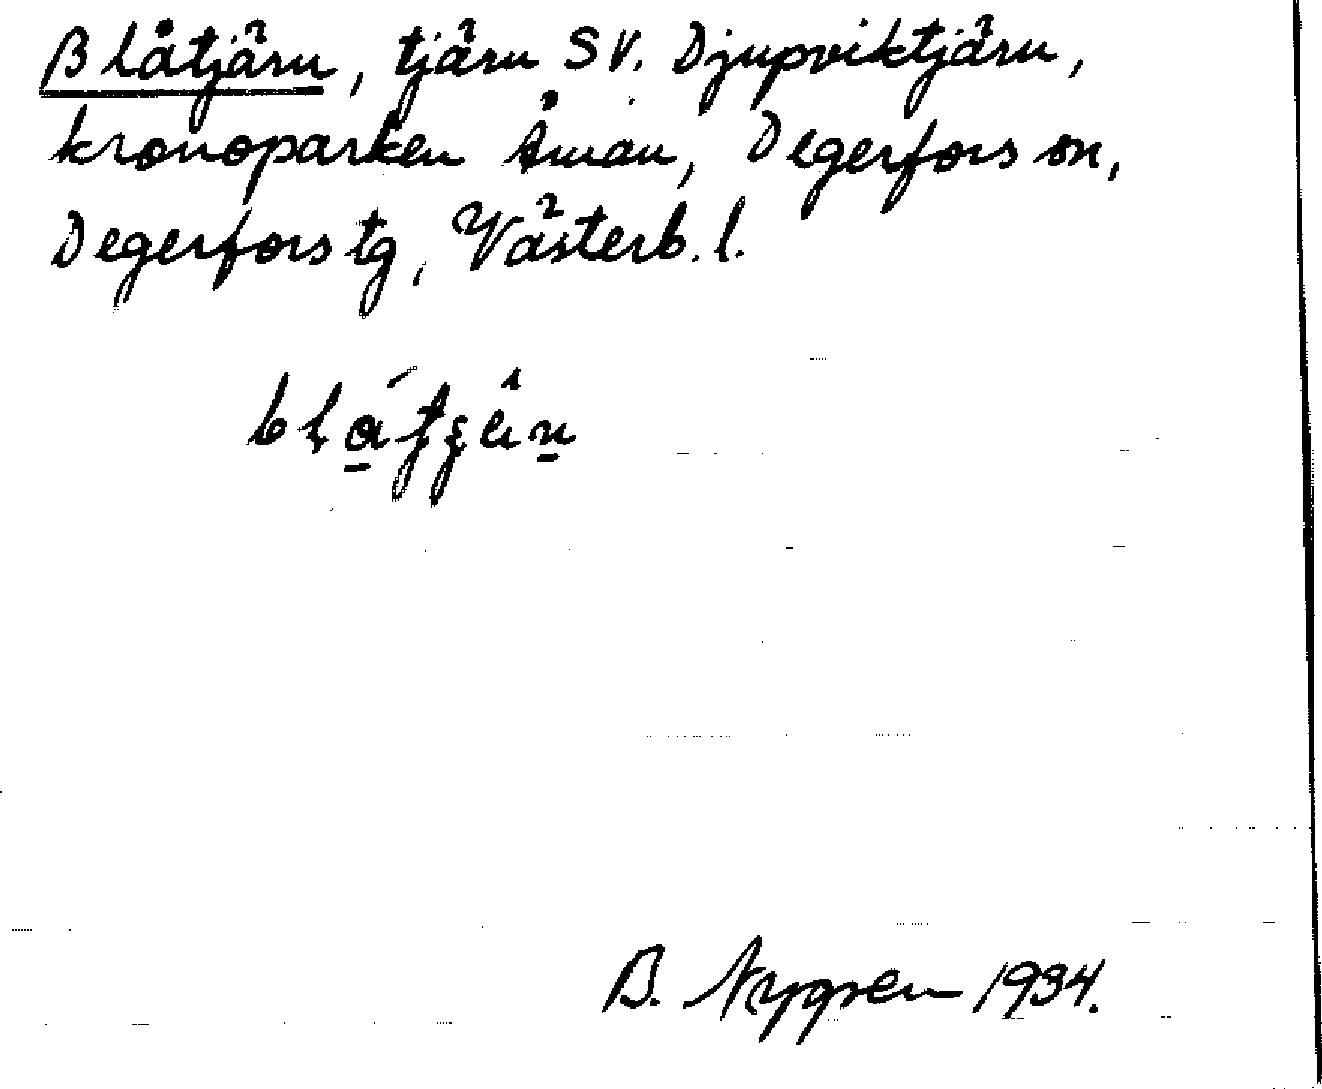 Blåtjärn, tjärn SV. Djupviktjärn,
kronoparken Åman, Degerfors sn,
Degerfors tg, Västerb. l.
B. Nygren 1934.